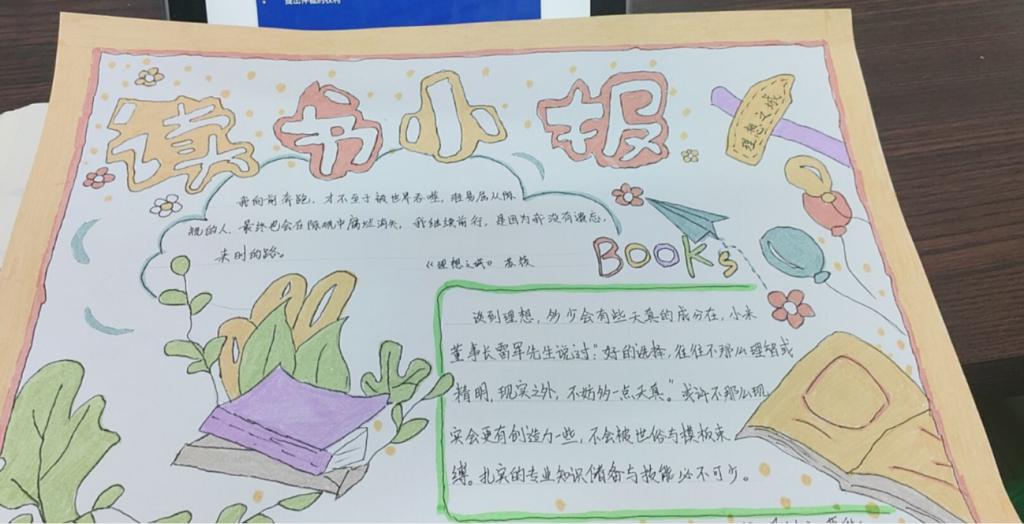 提出仲裁的权利
读书小报
理想之城
我向前奔跑，才不至于被世界吞噬，轻易屈从陈
规的人，最终也会在陈规中腐烂消失，我继续前行，是因为我没有遗忘，
来时的路。
《理想之城》 苏筱
BOOKs
谈到理想，多少会有些天真的成分在，小米
董事长雷军先生说过："好的选择，往往不那么理智或
精明，现实之外，不妨多一点天真。"或许不那么现
实会更有创造力一些，不会被世俗与模板束
缚。扎实的专业知识储备与技能必不可少。